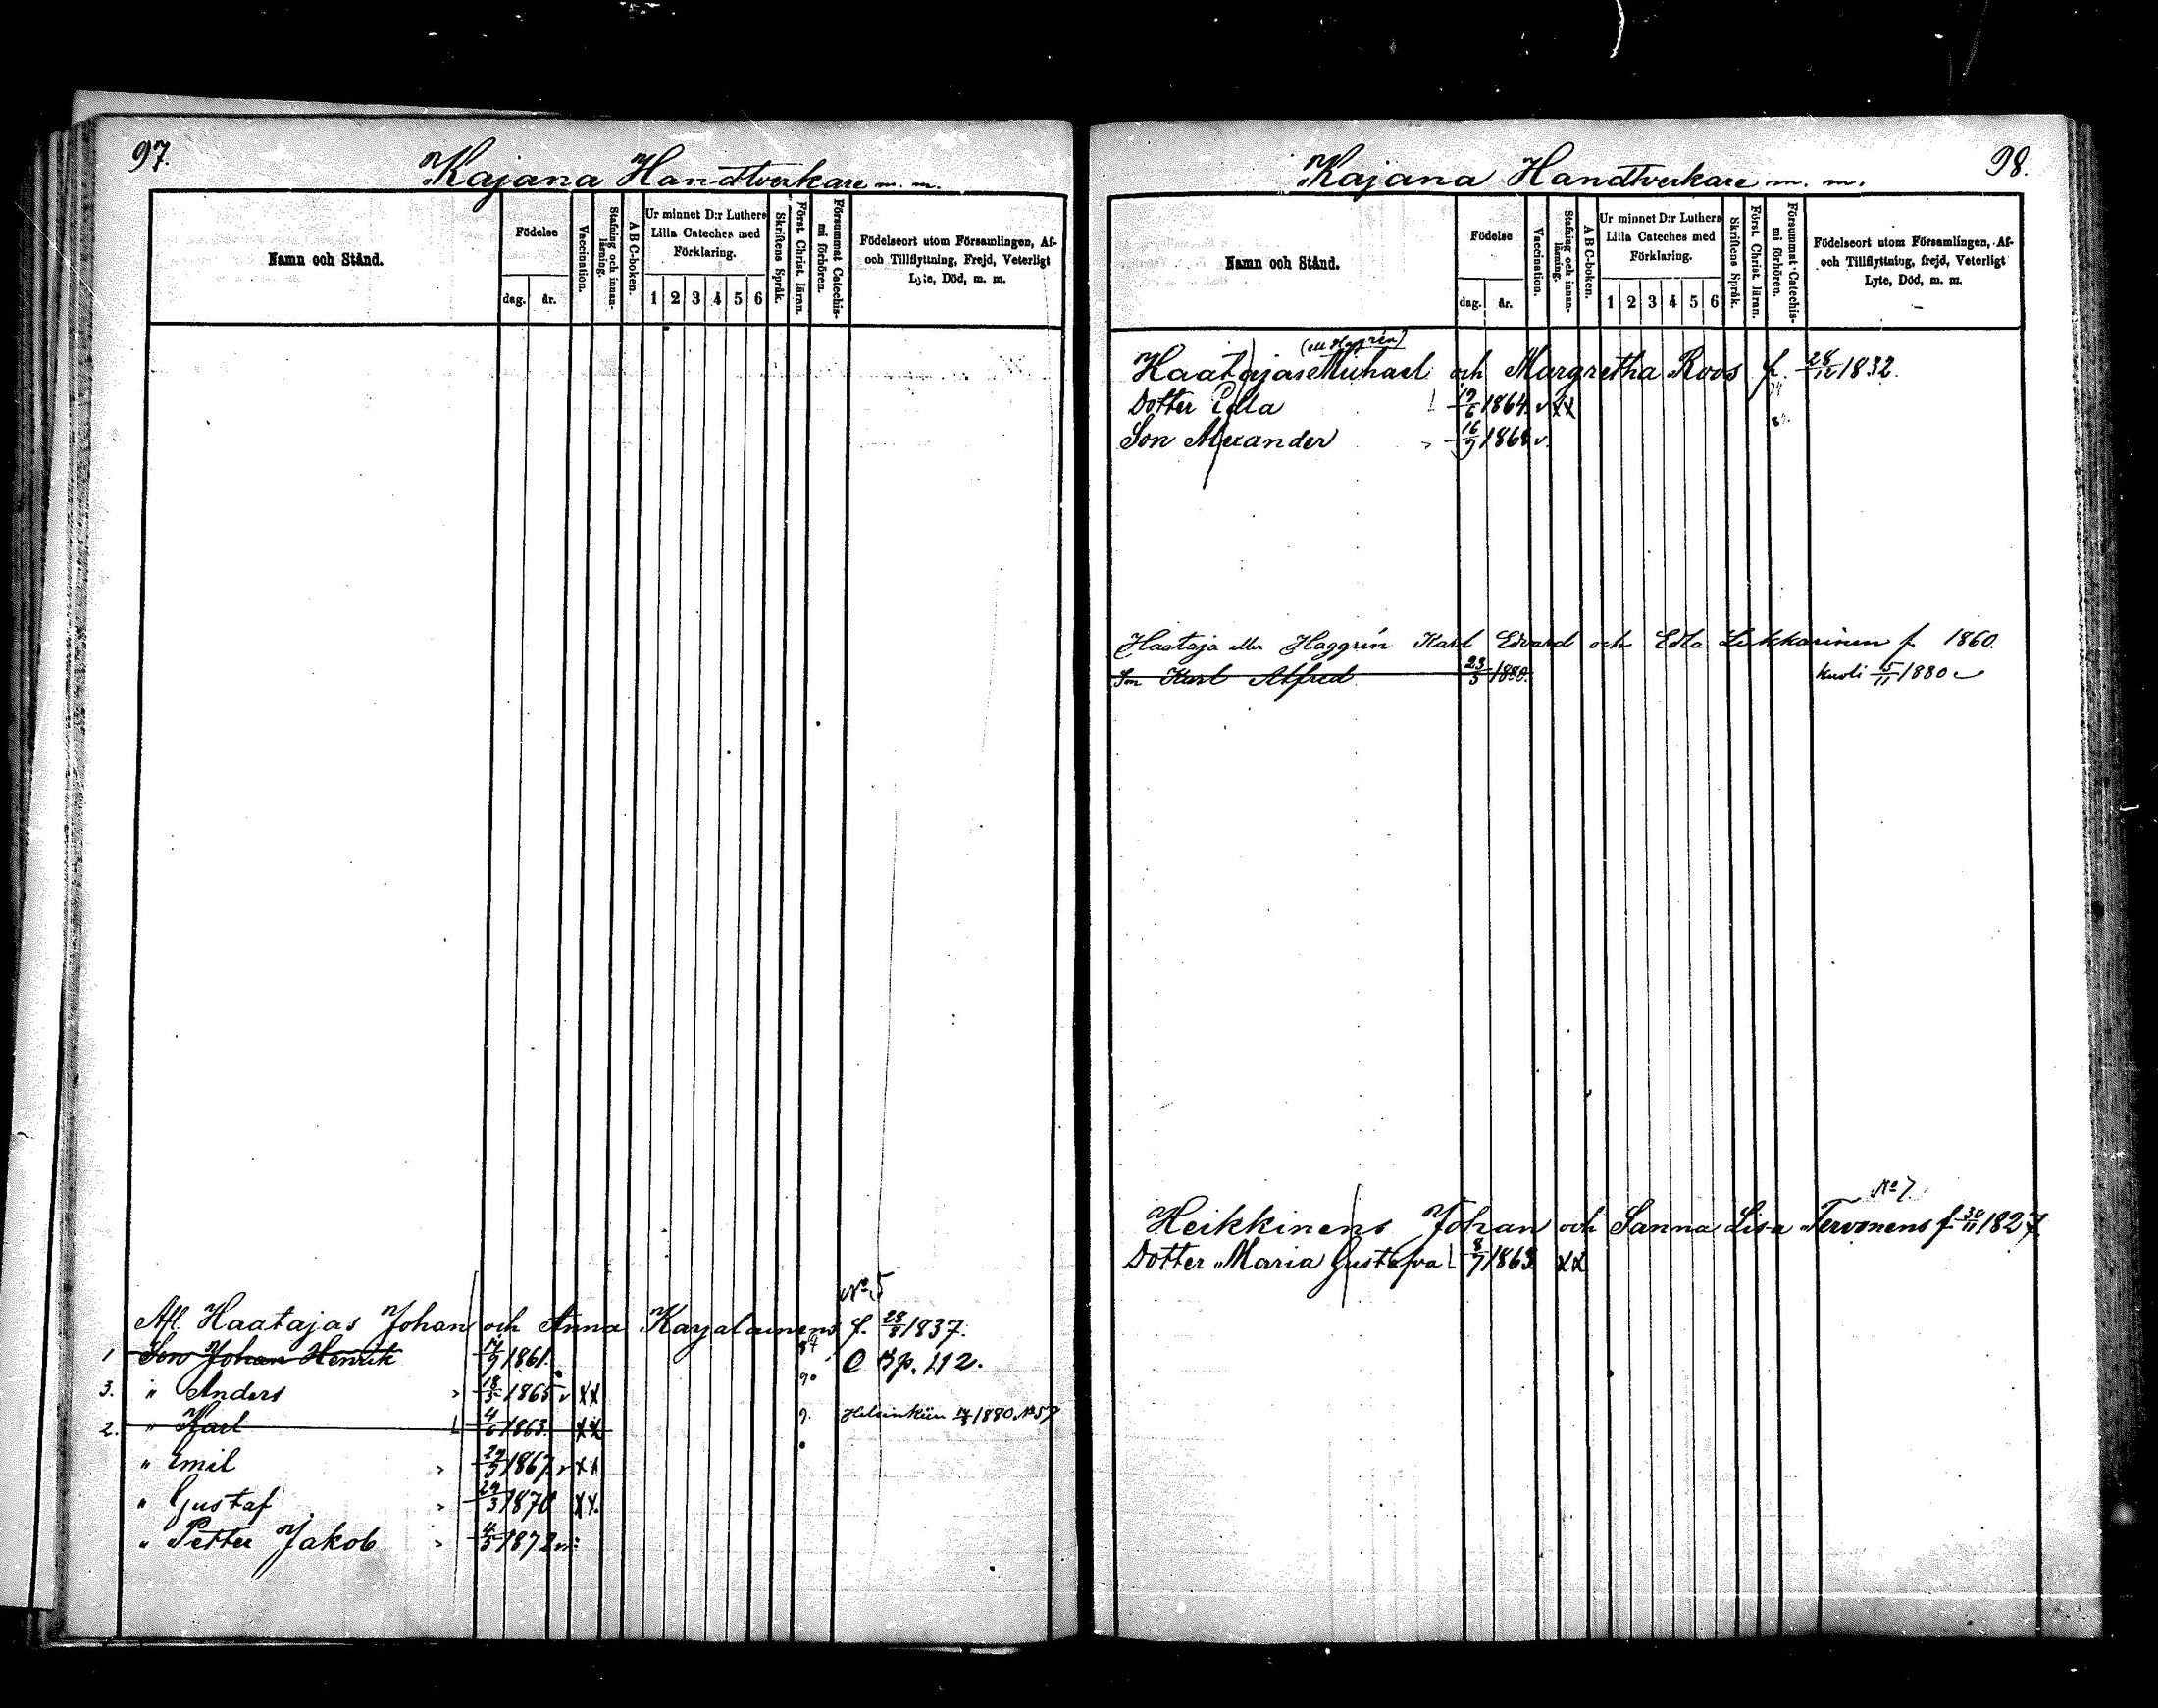 97.
Kajana Handtverkare m. m.
Namn och Stånd.
Födelse
dag. år.
Vaccination.
Stafning och innan-läsning.
ABC-boken.
Ur minnet D:r Luthers Lilla Cateches med Förklaring.
1 2 3 4 5 6
Skriftens Språk.
Först. Christ. läran.
Försummat Catechis-mi förhören.
Födelseort utom Församlingen, Af-
och Tillflyttning, Frejd, Veterligt
Lyte, Död, m. m.
No 5
Afl. Haatajas Johan och Anna Karjalainens f. 28/8 1837.
1 Son Johan Henrik 14/9 1861. 84 O B p. 112.
3. " Anders 18/5 1865 v xx 90
2. " Karl 4/6 1863. xx Helsinkiin 1880. No 57
" Emil 1867 v xx
" Gustaf 29/3 1870 xx.
" Petter Jakob 4/5 1872 v.
98.
Kajana Handtverkare m. m.
Namn och Stånd.
Födelse
dag. år.
Vaccination.
Stafning och innan-läsning.
ABC-boken.
Ur minnet D:r Luthers Lilla Cateches med Förklaring.
1 2 3 4 5 6
Skriftens Språk.
Först. Christ. läran.
Försummat Catechis-mi förhören.
Födelseort utom Församlingen, Af-
och Tillflyttning, frejd, Veterligt
Lyte, Död, m. m.
(ell. Haggrén)
Haatajas Michael och Margretha Roos f. 28/12 1832.
Dotter Edla 19/6 1864. v xx
Son Alexander 16/9 1868 v.
Haataja eller Haggrén Karl Edvard och Edla Likkarinen f 1860.
Son Karl Alfred 23/3 1880. kuoli 5/11 1880
No 7
Heikkinens Johan och Sanna Lisa Tervonens f. 30/11 1827.
Dotter Maria Gustafva 8/7 1863. xx